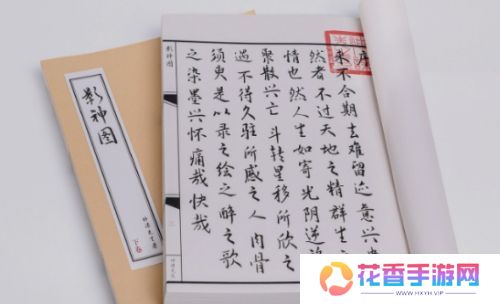 序
来不合期去难留迹意兴
然者不过天地之精群生
情也然人生如寄光阴逆
聚散兴亡斗转星移所欣之
遇不得久驻所感之人肉骨
须臾是以录之绘之醉之歌
之染墨兴怀痛哉快哉
影神图
影神图
下卷
花香手游网
WWW.HXYH.VIP